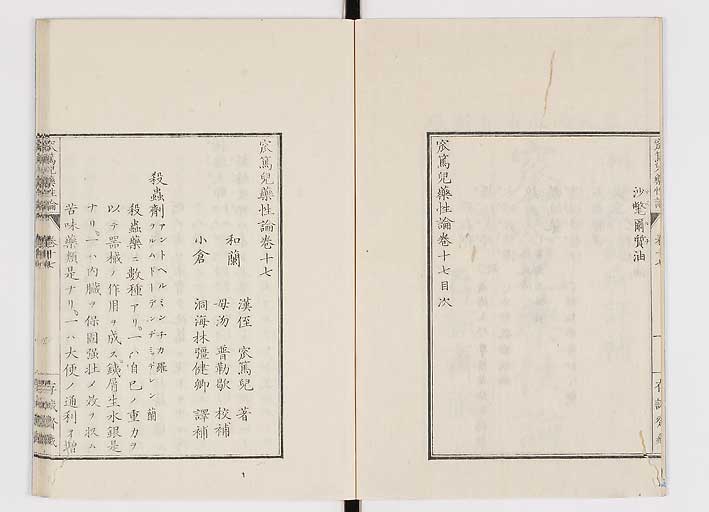 宲篤兒藥性論卷十七目次
沙鼈爾賛油
宲篤兒藥性論卷十七
漢侄 宲篤兒 著
和蘭
母汤 普勒歇 校補
小倉
洞海林彊健卿 譯補
殺蟲劑アントヘルミンチカ羅
ウルムドーデンデミッデレン蘭
殺蟲藥ニ數種アリ。一ハ自巳ノ重力ヲ
以テ器械ノ作用ヲ成ス。鐵屑生水銀是
ナリ。一ハ内臟ヲ保固强壯メ效ヲ収ム
苦味藥類是ナリ。一ハ大便ノ通利ヲ增